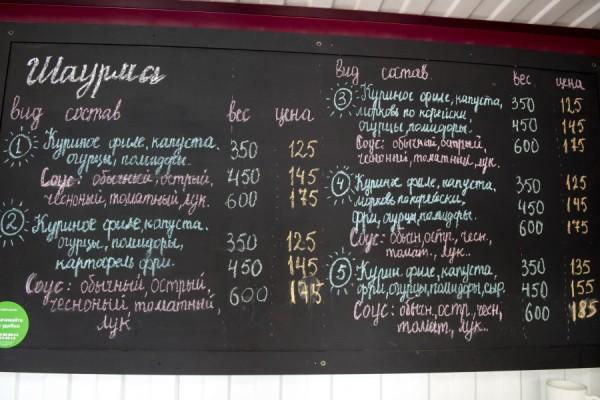 Шаурма
вид состав вес цена
1 Куриное филе, капуста. 350 125
огурцы, помидоры.
Соус: обычный, острый, 450 145
чесночный, томатный, лук. 600 175
2 Куриное филе, капуста.
огурцы, помидоры, 350 125
картофель фри. 450 145
Соус: обычный острый 600 175
чесноный, томатный,
лук
Вид состав вес цена
3 Куриное филе, капуста, 350 125
морковь по корейски,
огурцы, помидоры. 450 145
Соус: обычный, острый, 600 175
чесноный, томатный, лук..
4 Куриное филе, капуста, 350 125
морковь по корейски, 450 145
фри, огурцы, помидоры. 600 175
Соус: обычн, остр., чесн.,
томат., лук..
5 Курин. филе, капуста, 350 135
фри, огурцы, помидоры, сыр. 450 155
Соус: обычн, остр., чесн, 600 185
томат., лук..